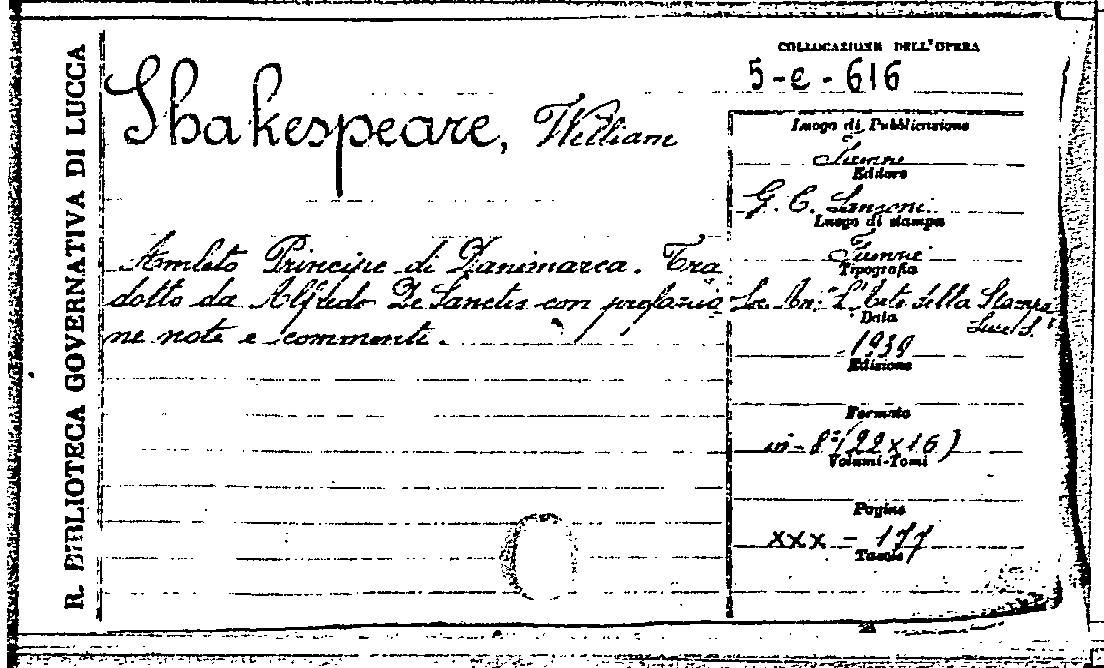 R. BIBLIOTECA GOVERNATIVA DI LUCCA
COLLOCAZIONE DELL'OPERA
5-e-616
Shakespeare, William
Luogo di Pubblicazione
Firenze
Editore
G. C. Sansoni
Luogo di stampa
Firenze
Tipografia
Soc. An. "L'Arte della Stampa"
Amleto Principe di Danimarca. Tra
dotto da Alfredo De Sanctis con prefazio
ne note e commenti.
Data
1939
Edizione
Formato
in-8°(22x16)
Volumi-Tomi
Pagine
xxx - 177
Tavole